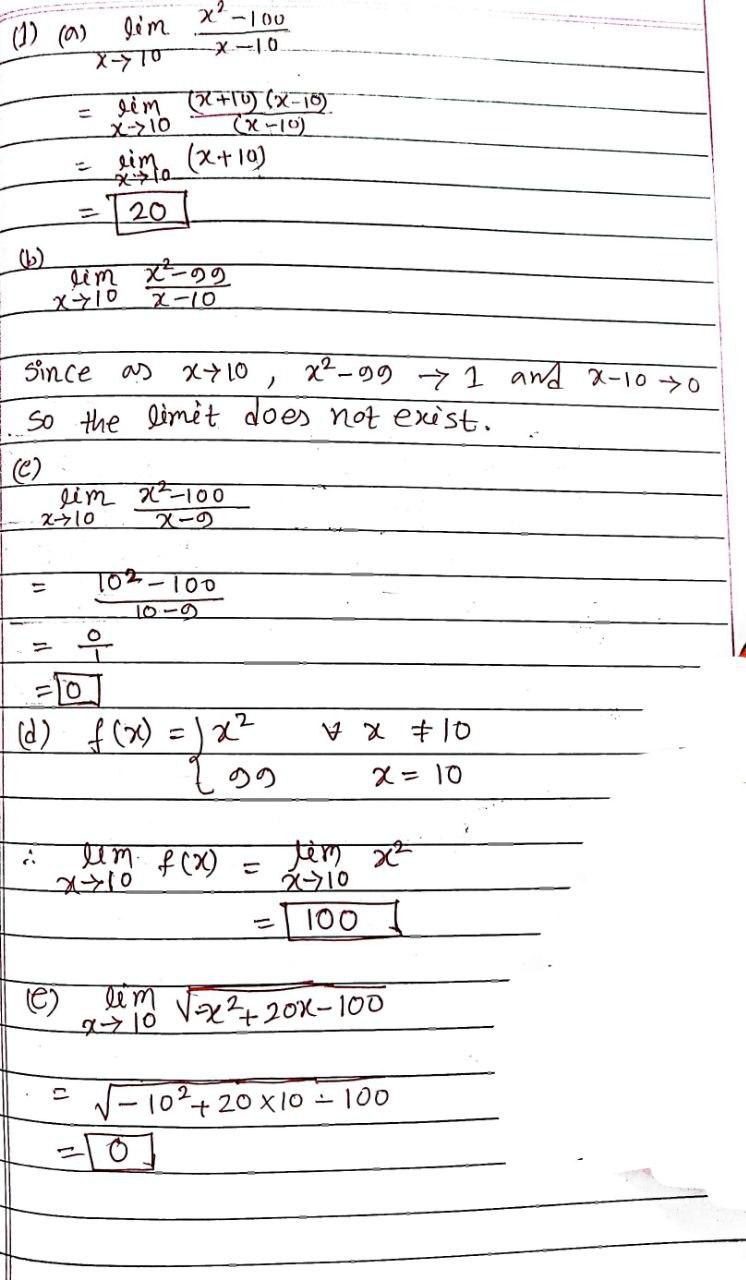 (1) (a) lim x→10 x²-100 / x-10
= lim x→10 (x+10)(x-10) / (x-10)
= lim x→10 (x+10)
= 20
(b)
lim x→10 x²-99 / x-10
Since as x→10, x²-99 → 1 and x-10→0
so the limit does not exist.
(c)
lim x→10 x²-100 / x-9
= 10²-100 / 10-9
= 0/1
= 0
(d) f(x) = { x² ∀ x ≠ 10
99 x = 10
∴ lim x→10 f(x) = lim x→10 x²
= 100
(e) lim x→10 √-x²+20x-100
= √-10²+20×10-100
= 0